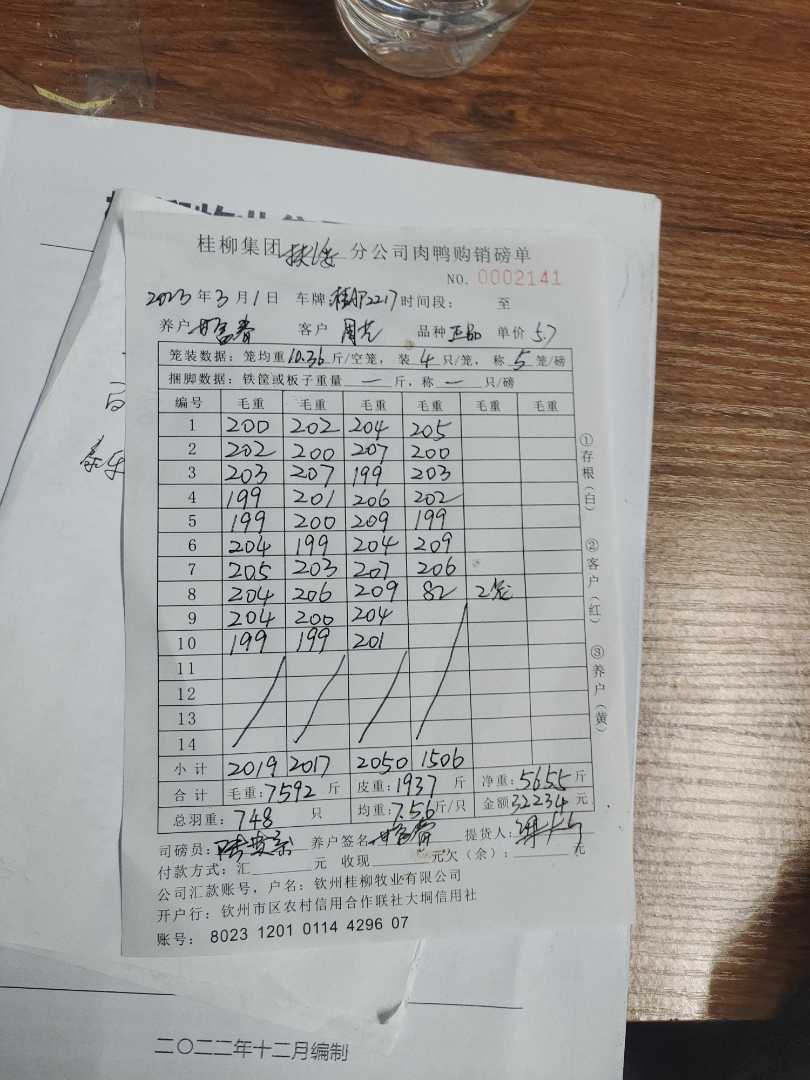 桂柳集团扶绥分公司肉鸭购销磅单
NO. 0002141
2023年3月1日 车牌:桂 2217 时间段: 至
养户 春 客户 周 品种 正品 单价 5.7
笼装数据: 笼均重10.36斤/空笼, 装4只/笼, 称5笼/磅
捆脚数据: 铁筐或板子重量 — 斤, 称 — 只/磅
编号 毛重 毛重 毛重 毛重 毛重 毛重
1 200 202 204 205
2 202 200 207 200
3 203 207 199 203
4 199 201 206 202
5 199 200 209 199
6 204 199 204 209
7 205 203 207 206
8 204 206 209 82 2笼
9 204 200 204
10 199 199 201
11
12
13
14
小计 2019 2017 2050 1506
合计 毛重:7592斤 皮重:1937斤 净重:5655斤
总羽重: 748 只 均重:7.56斤/只 金额32234元
司磅员: 养户签名 提货人:
付款方式: 汇 元 收现 元欠(余): 元
公司汇款账号, 户名: 钦州桂柳牧业有限公司
开户行: 钦州市区农村信用合作联社大垌信用社
账号: 8023 1201 0114 4296 07
①存根(白)
②客户(红)
③养户(黄)
二〇二二年十二月编制